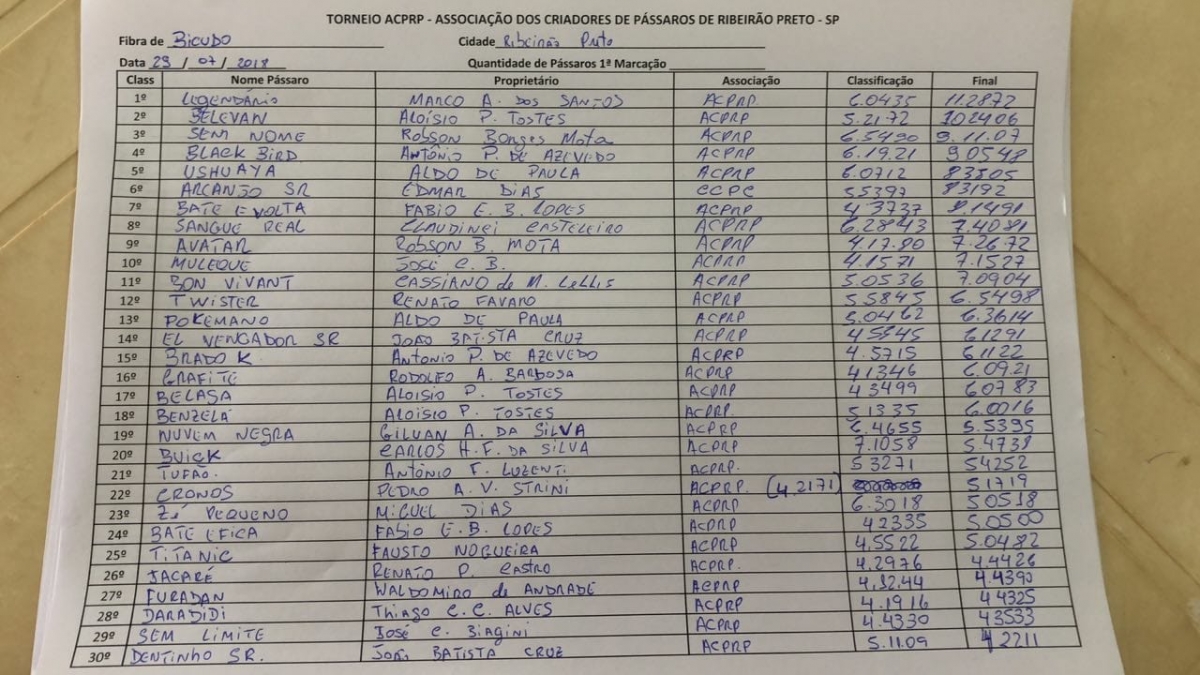 TORNEIO ACPRP - ASSOCIAÇÃO DOS CRIADORES DE PÁSSAROS DE RIBEIRÃO PRETO - SP
Fibra de Bicudo Cidade Ribeirão Preto
Data 29 / 07 / 2018 Quantidade de Pássaros 1ª Marcação
Class Nome Pássaro Proprietário Associação Classificação Final
1º LEGENDÁRIO MARCO A. DOS SANTOS ACPRP. 6.0435 11.2872
2º BELEVAN ALOÍSIO P. TOSTES ACPRP 5.2172 102406
3º SEM NOME ROBSON Borges Mota ACPRP 6.5490 9.11.07
4º BLACK BIRD ANTÔNIO P. DE AZEVEDO ACPRP 6.19.21 90548
5º USHUAYA ALDO DE PAULA ACPRP 6.0712
6º ARCANJO SR EDMAR DIAS CCPC 55397 83192
7º BATE E VOLTA FABIO E. B. LOPES ACPRP 4.3737 8.1491
8º SANGUE REAL CLAUDINEI CASTELEIRO ACPRP 6.2843 7.4081
9º AVATAR ROBSON B. MOTA ACPRP 4.17.90 7.26.72
10º MULEQUE JOSÉ C. B. ACPRP 4.1571 7.1527
11º BON VIVANT CASSIANO de M. Lellis ACPRP 5.0536 7.0904
12º TWISTER RENATO FAVARO ACPRP 5.5845 6.5498
13º POKEMANO ALDO DE PAULA ACPRP 5.0462 6.3614
14º EL VENGADOR SR JOÃO BATISTA CRUZ ACPRP 45845 61291
15º BRADO K ANTONIO P. DE AZEVEDO ACPRP 4.5715 61122
16º GRAFITE RODOLFO A. BARBOSA ACPRP 41346 6.09.21
17º BELASA ALOISIO P. TOSTES ACPRP 43499 60783
18º BENZELÁ ALOÍSIO P. TOSTES ACPRP. 5.1335 6.0016
19º NUVEM NEGRA GILVAN A. DA SILVA ACPRP 6.4655 5.5395
20º BUICK CARLOS H. F. DA SILVA ACPRP 7.1058 5.4738
21º TUFÃO. ANTÔNIO F. LUZENTI ACPRP. 53271 54252
22º CRONOS PEDRO A. V. STRINI ACPRP. (4.2171) 51719
23º ZÉ PEQUENO MIGUEL DIAS ACPRP 6.3018 50518
24º BATE E FICA FABIO E. B. LOPES ACPRP 42335 5.0500
25º TITANIC FAUSTO NOGUEIRA ACPRP 4.5522 5.0482
26º JACARÉ RENATO P. CASTRO ACPRP. 4.2976 4.4426
27º FURADAN WALDOMIRO de ANDRADE ACPRP 4.4390
28º DARADIDI THIAGO C. C. ALVES ACPRP 4.1916 44325
29º SEM LIMITE JOSÉ C. BIAGINI ACPRP 4.4330 43533
30º DENTINHO SR. JOÃO BATISTA CRUZ ACPRP 5.11.09 42211